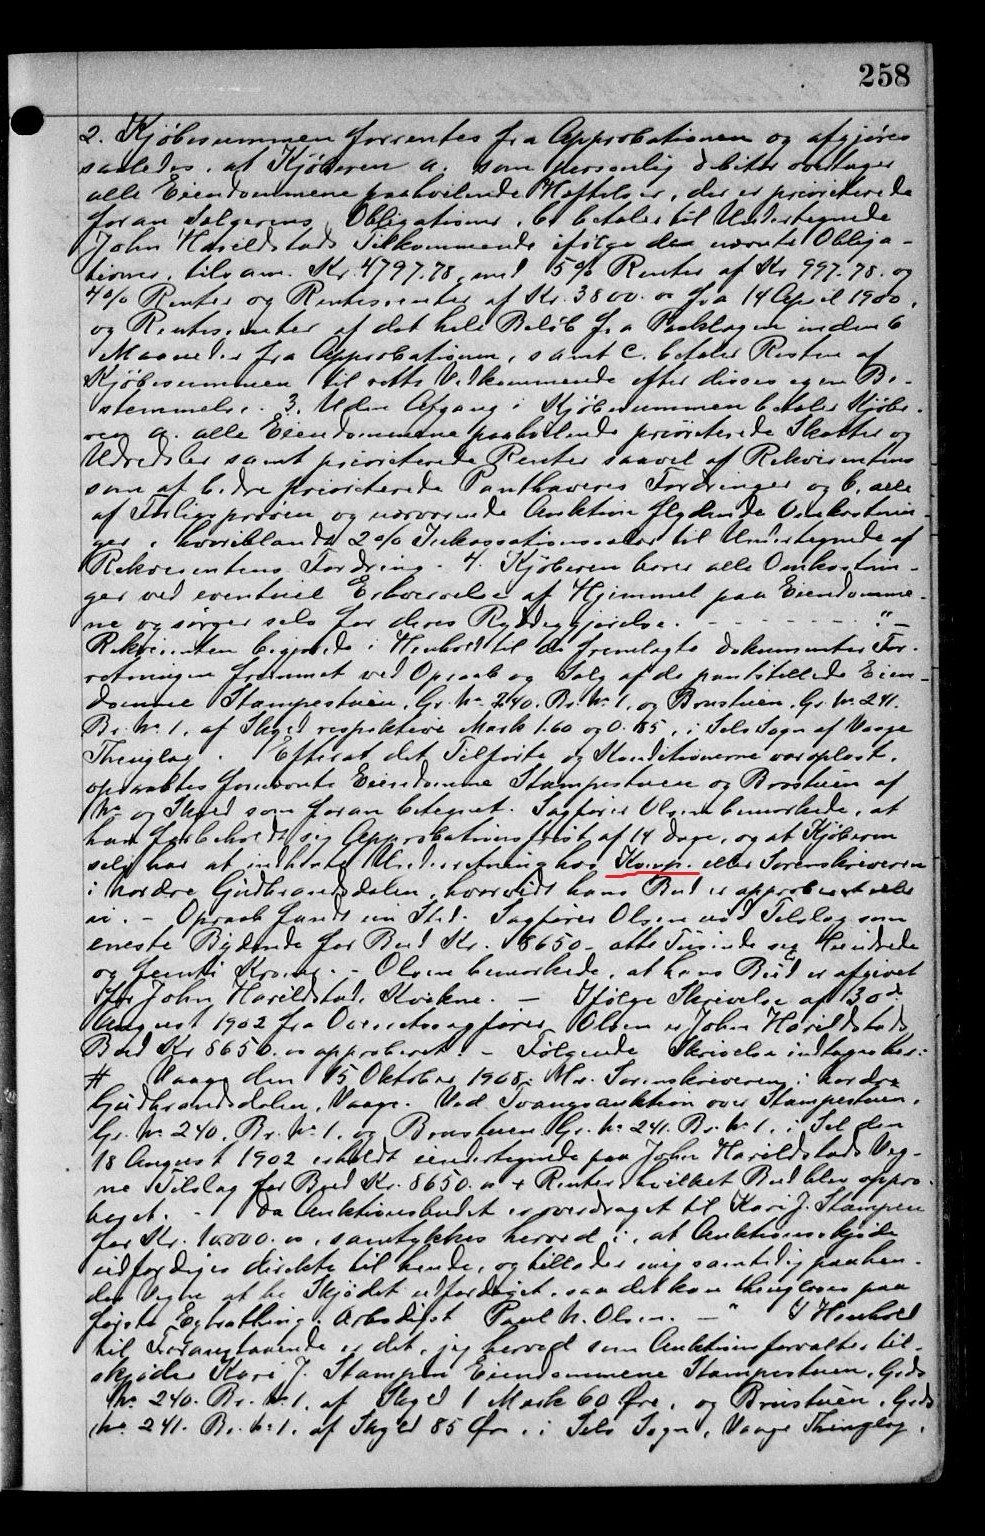 258
2. Kjøbesummen forrentes fra Approbationen og afgjøres
saaledes, at Kjøberen a. som personlig Debitor overtager
alle Eiendommene paahvilende Heftelser, der er prioriterede
foran Sælgerens Obligationer, b. betaler til Undertegnede
John Harildstads Tilkommende ifølge de nævnte Obliga-
tioner, tilsam. Kr. 4797.78, med 5% Renter af Kr. 997.78. og
4% Renter og Rentesrenter af Kr. 3800.00 fra 14 April 1900,
og Rentesrenter af det hele Beløb fra inden 6
Maaneder fra Approbationen, samt c. betaler Resten af
Kjøbesummen til rette Vedkommende efter disses egen Be-
stemmelse. 3. Uden Afgang i Kjøbesummen betaler Kjøbe-
ren a. alle Eiendommene paahvilende prioriterede Skatter og
Udredsler samt prioriterede Renter saavel af Rekvirentens
som af bedre prioriterede Panthaveres Fordringer og b. alle
af Forligsprøven og nærværende Auktion flydende Omkostnin-
ger, hvoriblandt 2% Inkassationssalær til Undertegnede af
Rekvirentens Fordring. 4. Kjøberen bærer alle Omkostnin-
ger ved eventuel Erhvervelse af Hjemmel paa Eiendomme-
ne og sørger selv for deres Ryddiggjørelse. - - - - - - - - "-
Rekvirenten begjærede i Henhold til de fremlagte Dokumenter For-
retningen fremmet ved Opraab og Salg af de pantstillede Eien-
domme Stampestuen, Gr. No. 240. Br. No. 1, og Brustuen, Gr. No. 241.
Br. No. 1, af Skyld respektive Mark 1.60 og 0.85, i Sels Sogn af Vaage
Thinglag. Efterat det Tilførte og Konditionerne var oplæst,
opraabtes fornævnte Eiendomme Stampestuen og Brustuen af
No. og Skyld som foran betegnet. Sagfører Olsen bemærkede, at
han forbeholdt sig Approbationsfrist af 14 Dage, og at Kjøberen
selv har at indhente Underretning hos Komp. eller Sorenskriveren
i Nordre Gudbrandsdalen, hvorvidt hans Bud er approberet eller
ei. - Opraab fandt nu Sted. Sagfører Olsen ved Tilslag som
eneste Bydende for Bud Kr. 8650 - otte Tusinde sex Hundrede
og femti Kroner. - Olsen bemærkede, at hans Bud er afgivet
for John Harildstad, Kvikne. - Ifølge Skrivelse af 30d.
August 1902 fra Overretssagfører Olsen er John Harildstads
Bud Kr. 8650.00 approberet. - Følgende Skrivelse indtages her:
# Vaage den 15 Oktober 1908. Hr. Sorenskriveren i Nordre
Gudbrandsdalen, Vaage. Ved Tvangsauktion over Stampestuen,
Gr. No. 240, Br. No. 1, og Brustuen Gr. No. 241. Br. No. 1, i Sel den
18 August 1902 erholdt undertegnede paa John Harildstads Veg-
ne Tilslag for Bud Kr. 8650.00 + Renter, hvilket Bud blev appro-
beret. - Da Auktionsbudet er overdraget til Kari J. Stampen
for Kr. 10000.00, samtykkes herved i, at Auktionsskjøde
udfærdiges direkte til hende, og tillader mig samtidig paa hen-
des Vegne at be Skjødet udfærdiget, saa det kan thinglæses paa
første Erbødigst Paul N. Olsen. - " I Henhold
til Foranstaaende er det, jeg herved som Auktionsforvalter til-
skjøder Kari J. Stampen Eiendommene Stampestuen, Gaards
No. 240. Br. No. 1, af Skyld 1 Mark 60 Øre, og Brustuen, Gards
No. 241. Br. No. 1. af Skyld 85 Øre, i Sels Sogn, Vaage Thinglag,